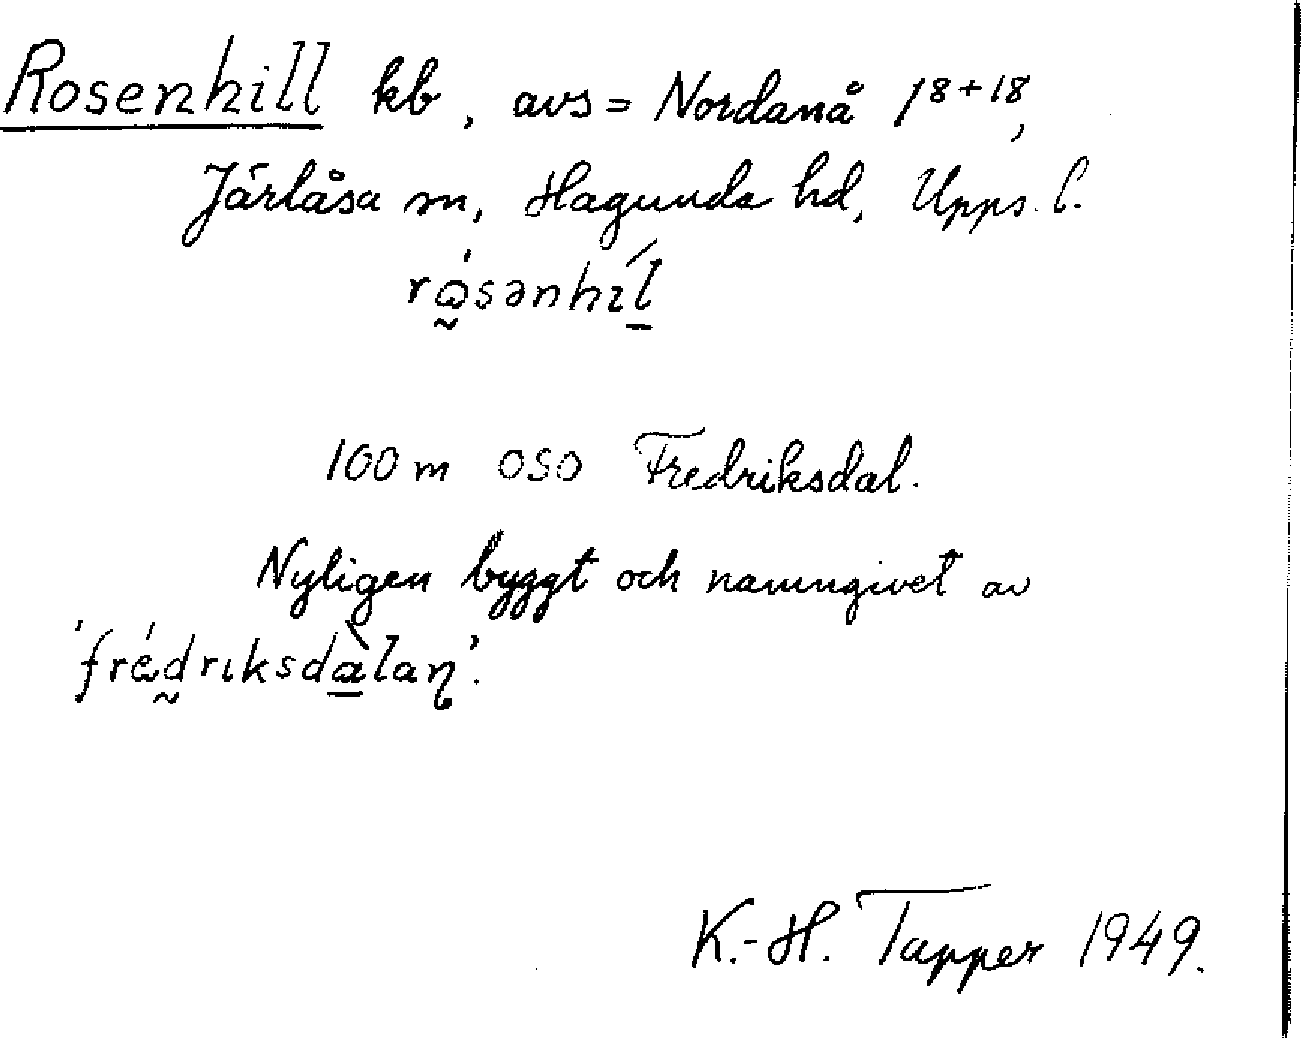 Rosenhill kb, avs = Nordanå 1⁸⁺¹⁸,
Järlåsa sn, Hagunda hd, Upps. l.
rώ̰sənhíl̲
100 m OSO Fredriksdal.
Nyligen byggt och namngivet av
'fréd̰rıksdà̲laɳ'.
K.-H. Tapper 1949.